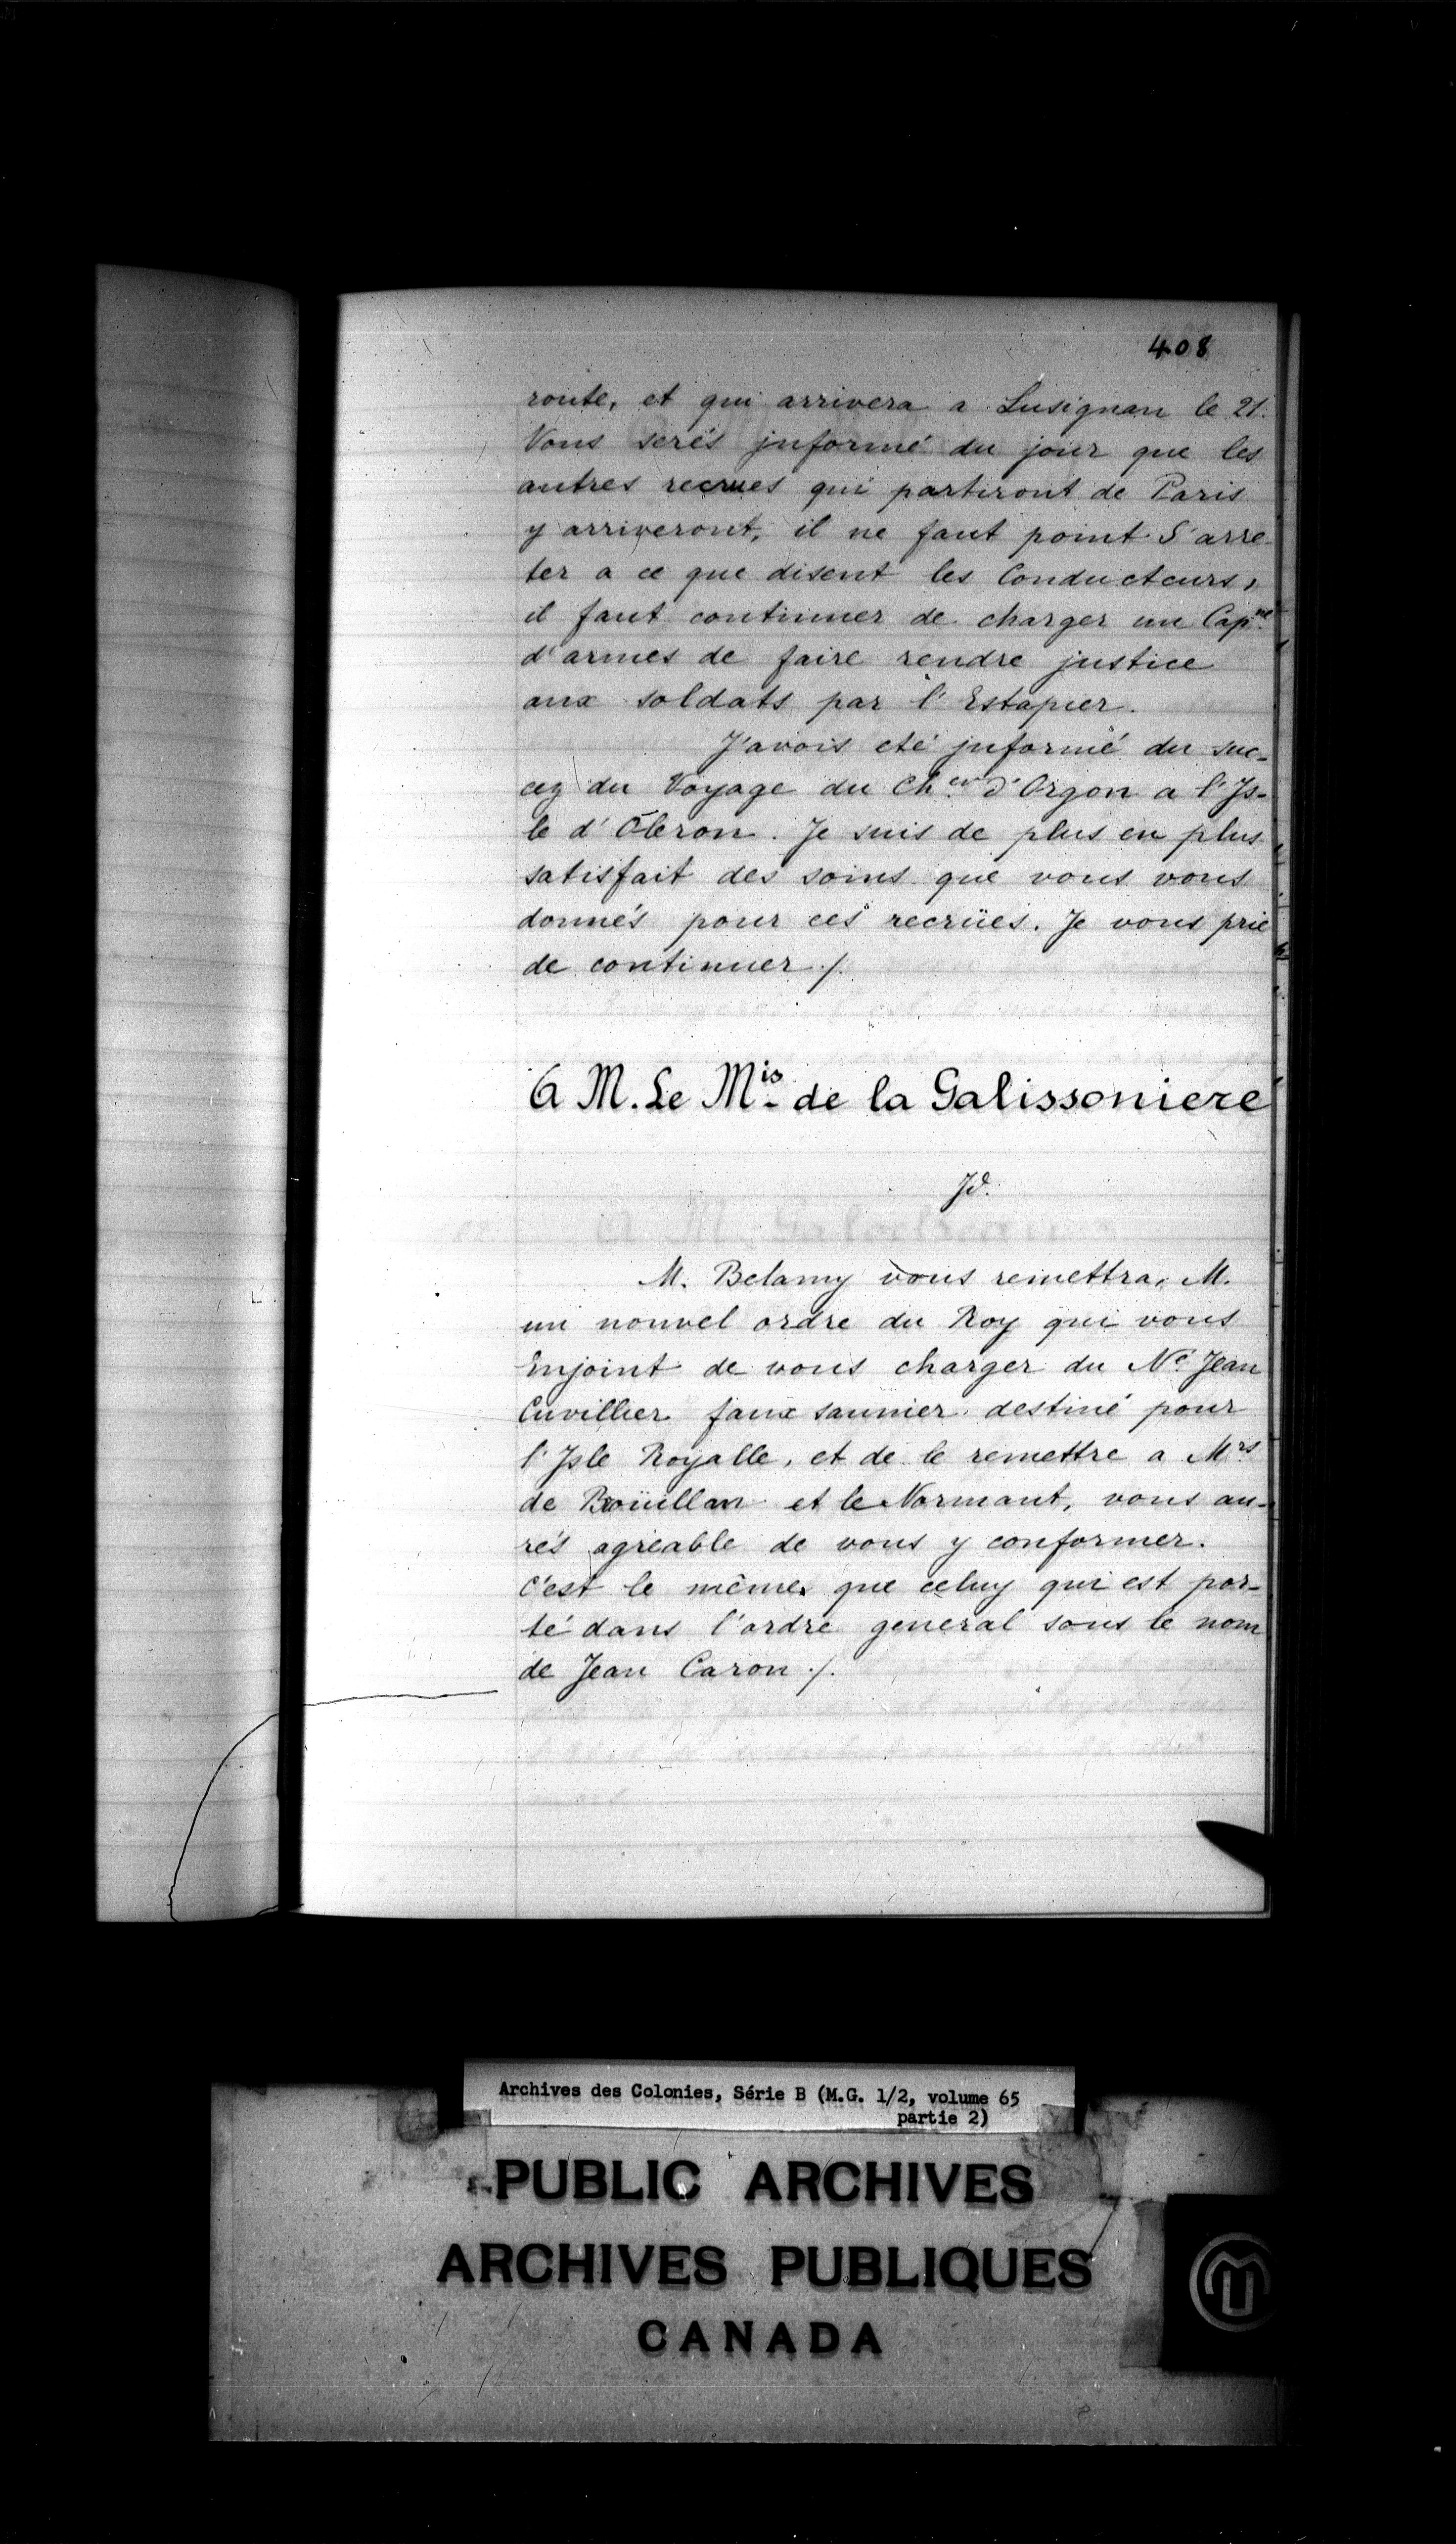 408
route, et qui arrivera a Lusignan le 21.
Vous serés jnformé du jour que les
autres recrues qui partiront de Paris
y arriveront, il ne faut point S'arre-
ter a ce que disent les Conducteurs,
il faut continuer de charger un Cap.ne
d'armes de faire rendre justice
aux soldats par l'Estapier.
J'avois eté jnformé du suc-
cez du Voyage du Ch.er d'Orgon a l'Js-
le d'Oleron. Je suis de plus en plus
satisfait des soins que vous vous
donnés pour ces recrües. Je vous prie
de continuer ./.
A M. Le M.is de la Galissoniere
Jd.
M. Belamy vous remettra, M.
un nouvel ordre du Roy qui vous
Enjoint de vous charger du N.é Jean
Cuvillier faux saunier destiné pour
l'Jsle Royalle, et de le remettre a M.rs
de Broüillan et le Normant, vous au-
rés agréable de vous y conformer.
C'est le même que celuy qui est por-
té dans l'ordre general sous le nom
de Jean Caron ./.
Archives des Colonies, Série B (M.G. 1/2, volume 65
partie 2)
PUBLIC ARCHIVES
ARCHIVES PUBLIQUES
CANADA